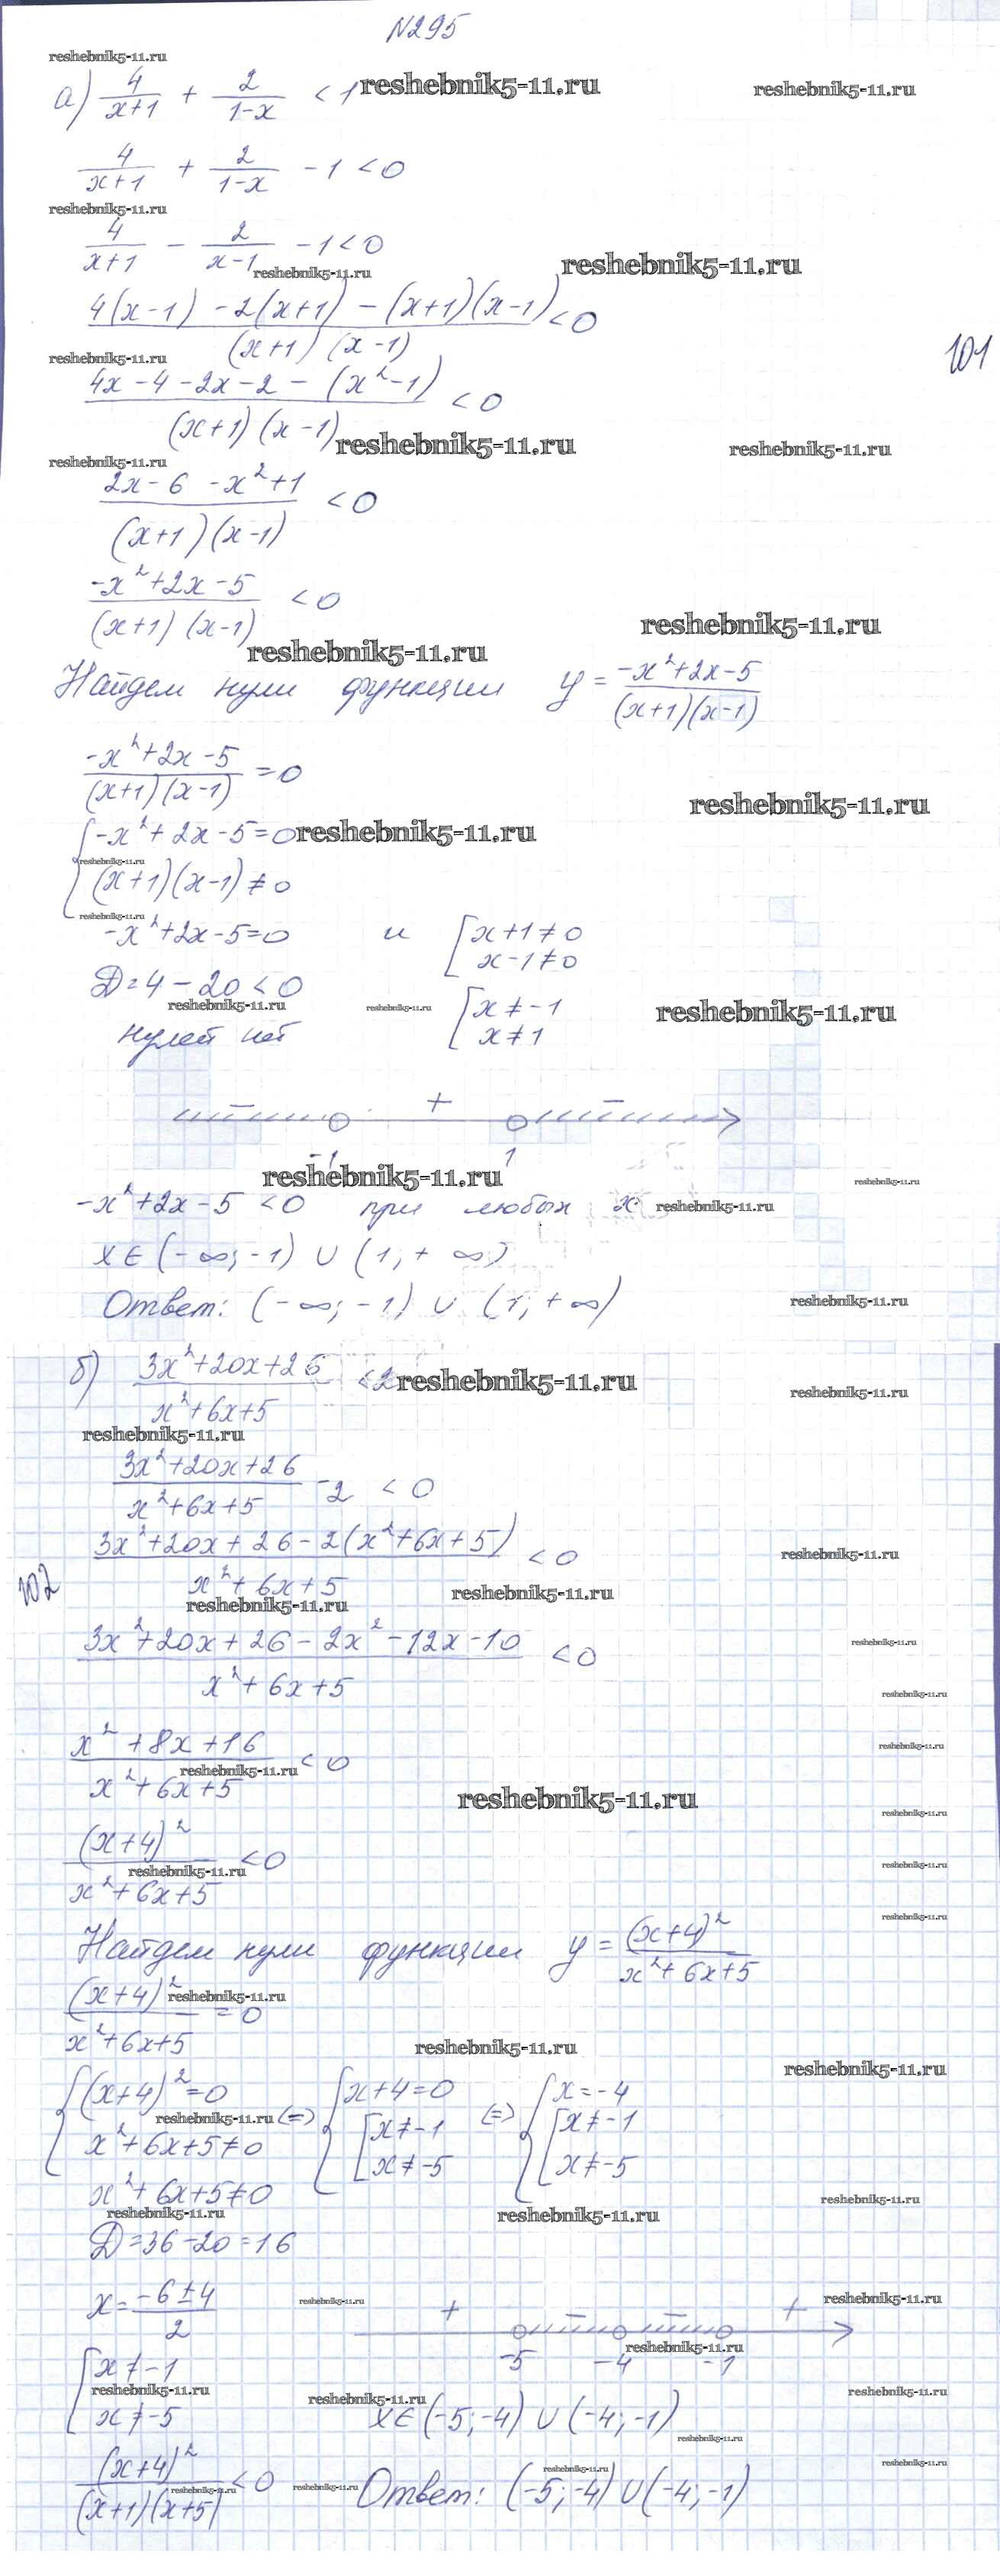 N295
reshebnik5-11.ru
а) 4/(x+1) + 2/(1-x) < 1 reshebnik5-11.ru reshebnik5-11.ru
4/(x+1) + 2/(1-x) - 1 < 0
reshebnik5-11.ru
4/(x+1) - 2/(x-1) - 1 < 0
reshebnik5-11.ru reshebnik5-11.ru
(4(x-1) - 2(x+1) - (x+1)(x-1))/((x+1)(x-1)) < 0
101
reshebnik5-11.ru
(4x-4-2x-2-(x²-1))/((x+1)(x-1)) < 0
reshebnik5-11.ru reshebnik5-11.ru
reshebnik5-11.ru
(2x-6-x²+1)/((x+1)(x-1)) < 0
(-x²+2x-5)/((x+1)(x-1)) < 0
reshebnik5-11.ru reshebnik5-11.ru
Найдем нули функции y = (-x²+2x-5)/((x+1)(x-1))
(-x²+2x-5)/((x+1)(x-1)) = 0
reshebnik5-11.ru
{ -x²+2x-5=0 reshebnik5-11.ru
reshebnik5-11.ru
(x+1)(x-1)≠0
reshebnik5-11.ru
-x²+2x-5=0 и [ x+1≠0
x-1≠0
D=4-20<0
reshebnik5-11.ru reshebnik5-11.ru reshebnik5-11.ru
нулей нет [ x≠-1
x≠1
- + -
-1 1
reshebnik5-11.ru reshebnik5-11.ru
-x²+2x-5 <0 при любых x reshebnik5-11.ru
x∈(-∞;-1) ∪ (1;+∞)
Ответ: (-∞;-1) ∪ (1;+∞)
reshebnik5-11.ru
б) (3x²+20x+26)/(x²+6x+5) <2 reshebnik5-11.ru reshebnik5-11.ru
reshebnik5-11.ru
(3x²+20x+26)/(x²+6x+5) -2 < 0
(3x²+20x+26-2(x²+6x+5))/(x²+6x+5) <0
reshebnik5-11.ru
102
reshebnik5-11.ru reshebnik5-11.ru
(3x²+20x+26-2x²-12x-10)/(x²+6x+5) <0
reshebnik5-11.ru
reshebnik5-11.ru
(x²+8x+16)/(x²+6x+5) <0
reshebnik5-11.ru reshebnik5-11.ru
reshebnik5-11.ru reshebnik5-11.ru
(x+4)²/(x²+6x+5) <0
reshebnik5-11.ru reshebnik5-11.ru
reshebnik5-11.ru
Найдем нули функции y = (x+4)²/(x²+6x+5)
(x+4)²/(x²+6x+5) =0
reshebnik5-11.ru
reshebnik5-11.ru reshebnik5-11.ru
{ (x+4)²=0 { x+4=0 { x=-4
reshebnik5-11.ru (=) [ x≠-1 (=) [ x≠-1
x²+6x+5≠0 x≠-5 x≠-5
x²+6x+5≠0
reshebnik5-11.ru reshebnik5-11.ru reshebnik5-11.ru
D=36-20=16
x=(-6±4)/2
reshebnik5-11.ru reshebnik5-11.ru
+ - - +
reshebnik5-11.ru
-5 -4 -1
[ x≠-1
reshebnik5-11.ru reshebnik5-11.ru reshebnik5-11.ru
x≠-5
x∈(-5;-4) ∪ (-4;-1)
reshebnik5-11.ru
(x+4)²/((x+1)(x+5)) <0
reshebnik5-11.ru reshebnik5-11.ru
reshebnik5-11.ru reshebnik5-11.ru
Ответ: (-5;-4) ∪ (-4;-1)